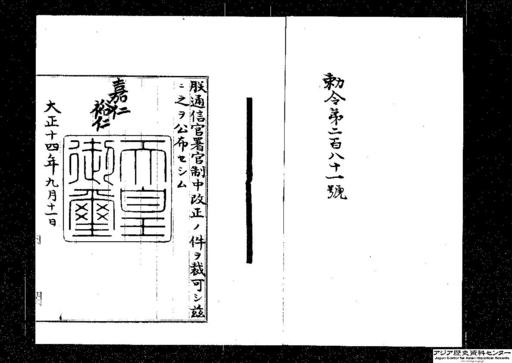 勅令第二百八十一號
朕通信官署官制中改正ノ件ヲ裁可シ茲
ニ之ヲ公布セシム
嘉仁
裕仁
天皇
御璽
大正十四年九月十一日
アジア歴史資料センター
Japan Center for Asian Historical Records